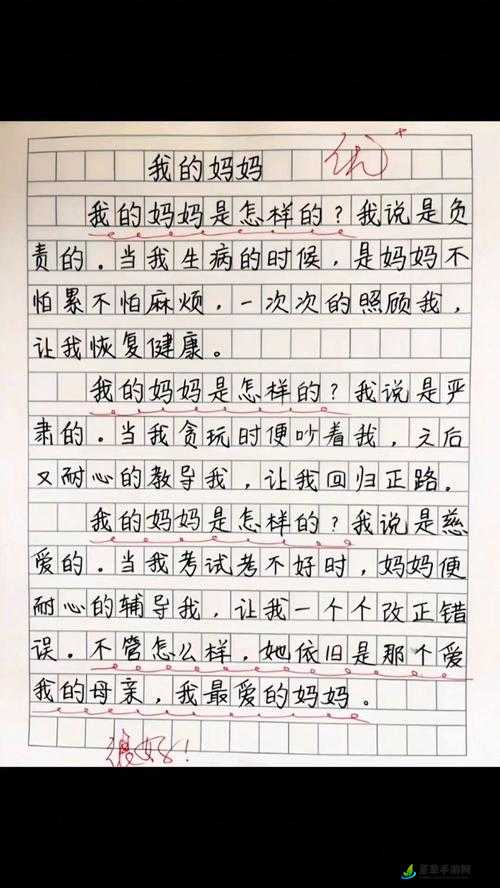 优+
我的妈妈
我的妈妈是怎样的？我说是负
责的．当我生病的时候，是妈妈不
怕累不怕麻烦，一次次的照顾我，
让我恢复健康。
我的妈妈是怎样的？我说是严
肃的．当我贪玩时便吵着我，之后
又耐心的教导我，让我回归正路．
我的妈妈是怎样的？我说是慈
爱的．当我考试考不好时，妈妈便
耐心的辅导我，让我一个个改正错
误。不管怎么样，她依旧是那个爱
我的母亲，我最爱的妈妈。
很好！